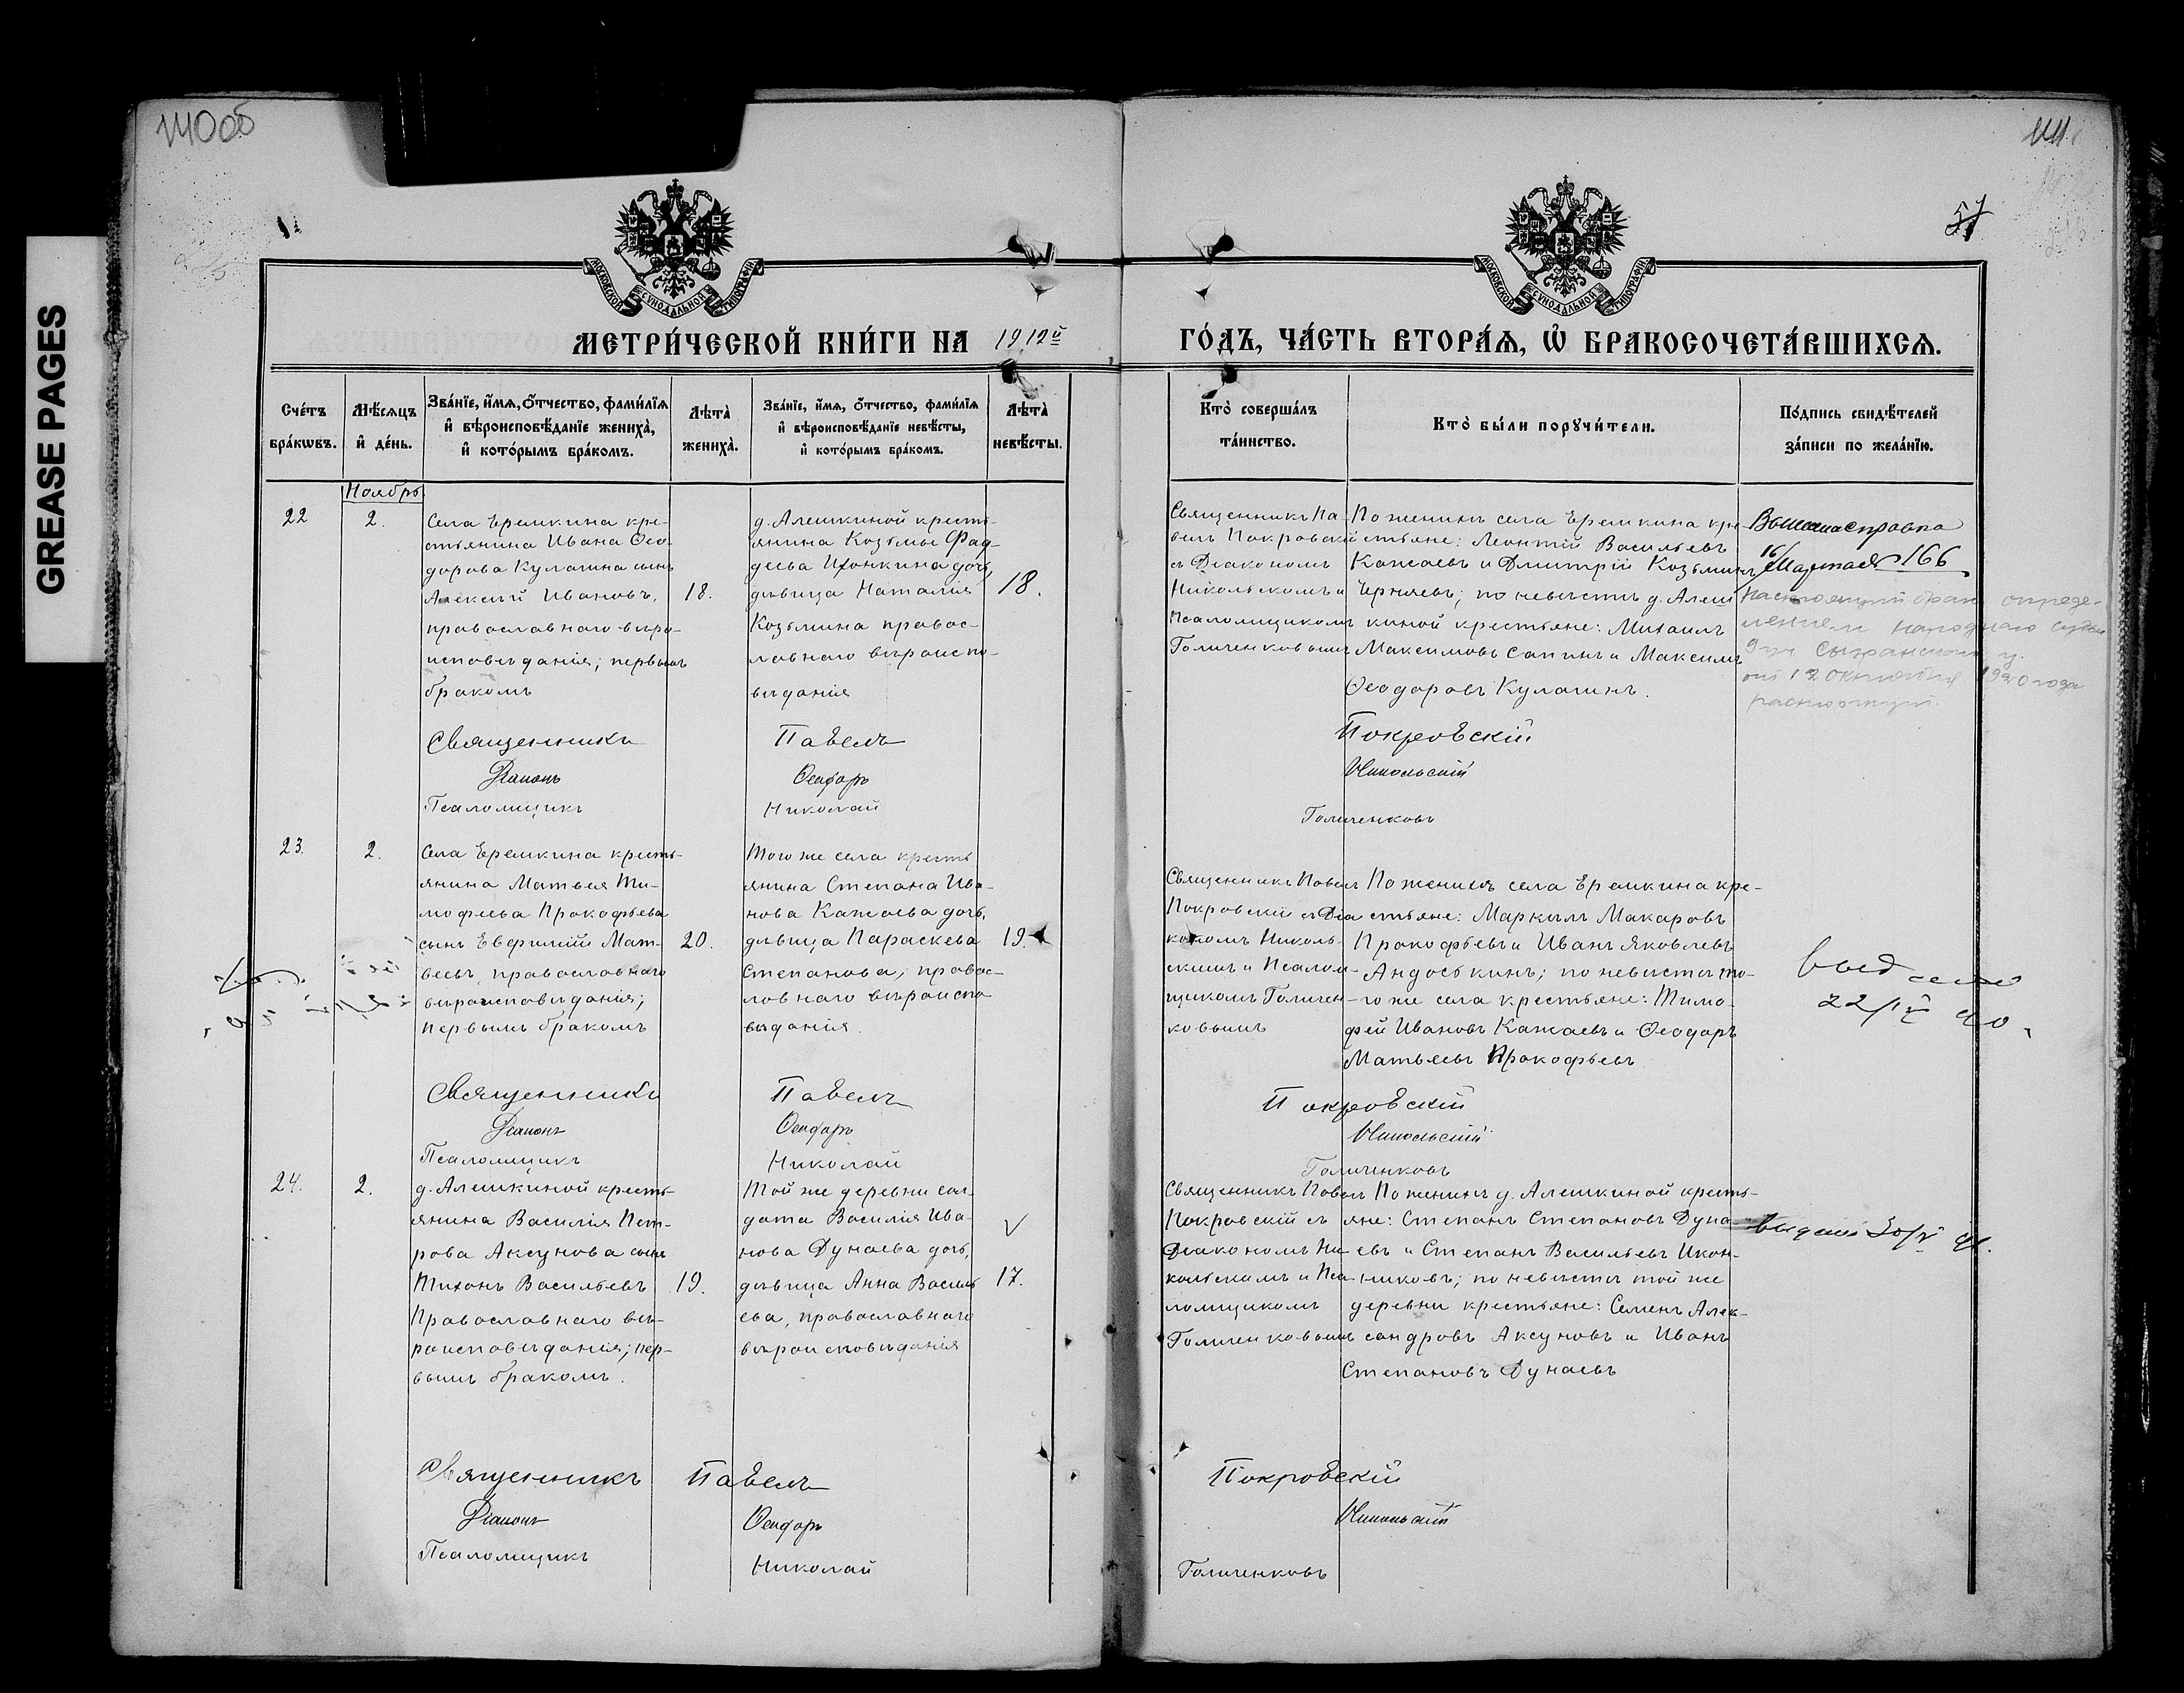 GREASE PAGES
140об
141
57
МОСКОВСКОЙ СѴНОДАЛЬНОЙ ТИПОГРАФІИ
МОСКОВСКОЙ СѴНОДАЛЬНОЙ ТИПОГРАФІИ
МЕТРИ́ЧЕСКОЙ КНИ́ГИ НА 1912й ГО́ДЪ, ЧА́СТЬ ВТОРА́Ѧ, Ѡ҆ БРАКОСОЧЕТА́ВШИХСѦ.
Сче́тъ бра́кѡвъ.
Мѣ́сѧцъ и҆ де́нь.
Зва́нїе, и҆́мѧ, ѻ҆́тчество, фами́лїѧ и҆ вѣроисповѣ́данїе жениха̀, и҆ кото́рымъ бра́комъ.
Лѣта̀ жениха̀.
Зва́нїе, и҆́мѧ, ѻ҆́тчество, фами́лїѧ и҆ вѣроисповѣ́данїе невѣ́сты, и҆ кото́рымъ бра́комъ.
Лѣта̀ невѣ́сты.
Кто̀ соверша́лъ та́инство.
Кто̀ бы́ли порꙋчи́тели.
По́дпись свидѣ́телей за́писи по жела́нїю.
Ноябрь
22
2.
Села Еремкина кре-
стьянина Ивана Ѳео-
дорова Кулагина сынъ
Алексій Ивановъ,
православнаго вѣро-
исповѣданія; первымъ
бракомъ
18.
д. Алешкиной кресть-
янина Козьмы Фад-
деева Ионкина дочь,
дѣвица Наталія
Козьмина правос-
лавнаго вѣроиспо-
вѣданія
18.
Священникъ Па-
велъ Покровскій
съ Діакономъ
Никольскимъ и
Псаломщикомъ
Голиченковымъ
По женихѣ села Еремкина кре-
стьяне: Леонтій Васильевъ
Кажаевъ и Дмитрій Козьминъ
Черняевъ; по невѣстѣ д. Алеш
киной крестьяне: Михаилъ
Максимовъ Сапинъ и Максимъ
Ѳеодоровъ Кулагинъ.
справка
16/Марта № 166
Настоящій бракъ опреде-
леніем народнаго судьи
9 уч Сызранскаго у.
от 12 Октября 1920 года
расторгнут.
Священникъ Павелъ Покровскій
Діаконъ Ѳеодоръ Никольскій
Псаломщикъ Николай Голиченковъ
23.
2.
Села Еремкина кресть-
янина Матвея Ти-
мофеева Прокофьева
сынъ Евфимій Мат-
веевъ, православнаго
вѣроисповѣданія;
первымъ бракомъ
20.
Того же села кресть
янина Степана Ива-
нова Кажаева дочь,
дѣвица Параскева
Степанова, правос-
лавнаго вѣроиспо
вѣданія.
19.
Священникъ Павелъ
Покровскій съ Діа
кономъ Николь-
скимъ и Псалом-
щикомъ Голичен-
ковымъ
По женихѣ села Еремкина кре-
стьяне: Маркилъ Макаровъ
Прокофьевъ и Иванъ Яковлевъ
Андоськинъ; по невѣстѣ то-
го же села крестьяне: Тимо-
фей Ивановъ Кажаевъ и Ѳеодоръ
Матвеевъ Прокофьевъ
Священникъ Павелъ Покровскій
Діаконъ Ѳеодоръ Никольскій
Псаломщикъ Николай Голиченковъ
24.
2.
д. Алешкиной кресть-
янина Василія Пет-
рова Аксунова сынъ
Тихонъ Васильевъ
Православнаго вѣ-
роисповѣданія; пер-
вымъ бракомъ.
19.
Той же деревни сол-
дата Василія Ива-
нова Дунаева дочь,
дѣвица Анна Василь
ева, православнаго
вѣроисповѣданія
17.
Священникъ Павелъ
Покровскій съ
Діакономъ Ни-
кольскимъ и Пса-
ломщикомъ
Голиченковымъ
По женихѣ д. Алешкиной кресть-
яне: Степанъ Степановъ Дуна-
евъ и Степанъ Васильевъ Икон-
никовъ; по невѣстѣ той же
деревни крестьяне: Семенъ Алек-
сандровъ Аксуновъ и Иванъ
Степановъ Дунаевъ
Священникъ Павелъ Покровскій
Діаконъ Ѳеодоръ Никольскій
Псаломщикъ Николай Голиченковъ